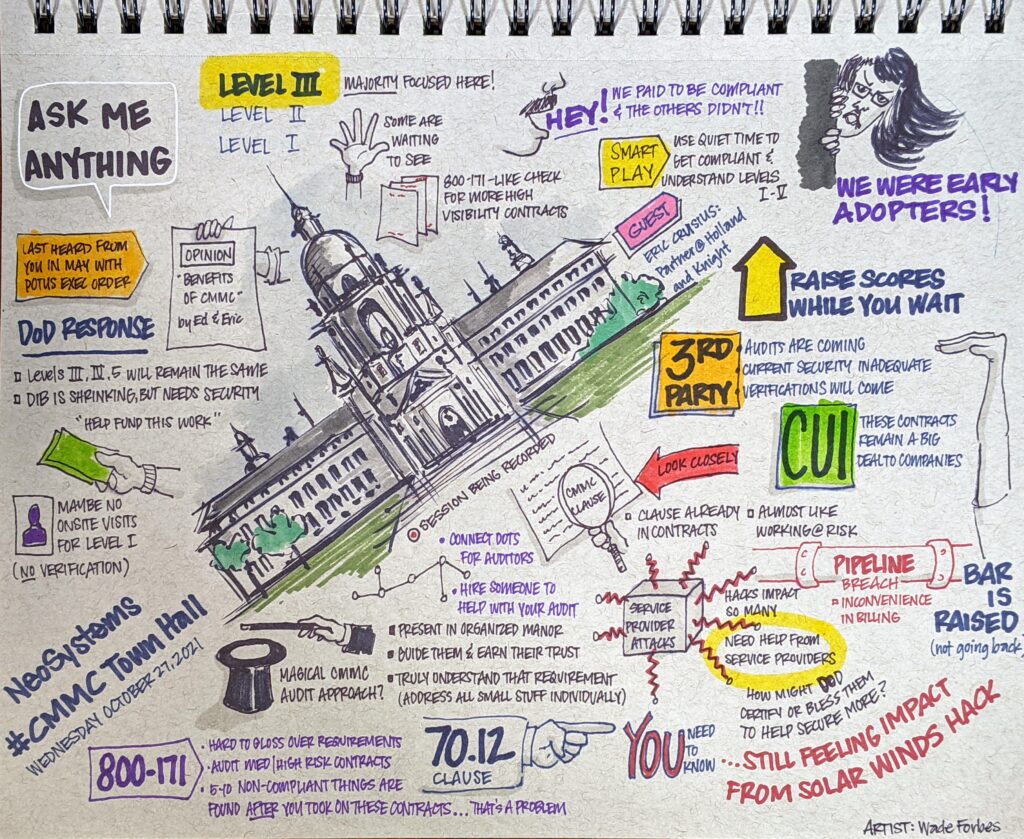 ASK ME
ANYTHING
LEVEL III
LEVEL II
LEVEL I
MAJORITY FOCUSED HERE!
SOME ARE
WAITING
TO SEE
800-171-LIKE CHECK
FOR MORE HIGH
VISIBILITY CONTRACTS
HEY! WE PAID TO BE COMPLIANT
& THE OTHERS DIDN'T!!
SMART
PLAY
USE QUIET TIME TO
GET COMPLIANT &
UNDERSTAND LEVELS
I-V
WE WERE EARLY
ADOPTERS!
GUEST
ERIC CRUSIUS:
Partner @ Holland
and Knight
LAST HEARD FROM
YOU IN MAY WITH
POTUS EXEC ORDER
OPINION
"BENEFITS
OF CMMC"
by Ed & Eric
DoD RESPONSE
Levels III, IV, 5 WILL REMAIN THE SAME
DIB IS SHRINKING, BUT NEEDS SECURITY
"HELP FUND THIS WORK"
MAYBE NO
ONSITE VISITS
FOR LEVEL I
(NO VERIFICATION)
RAISE SCORES
WHILE YOU WAIT
3RD
PARTY
AUDITS ARE COMING
CURRENT SECURITY INADEQUATE
VERIFICATIONS WILL COME
CUI
THESE CONTRACTS
REMAIN A BIG
DEAL TO COMPANIES
SESSION BEING RECORDED
CMMC
CLAUSE
LOOK CLOSELY
CLAUSE ALREADY
IN CONTRACTS
ALMOST LIKE
WORKING @ RISK
• CONNECT DOTS
FOR AUDITORS
• HIRE SOMEONE TO
HELP WITH YOUR AUDIT
PIPELINE
BREACH
- INCONVENIENCE
IN BILLING
BAR
IS
RAISED
(not going back)
SERVICE
PROVIDER
ATTACKS
HACKS IMPACT
SO MANY
NEED HELP FROM
SERVICE PROVIDERS
HOW MIGHT DOD
CERTIFY OR BLESS THEM
TO HELP SECURE MORE?
NeoSystems
#CMMC Town Hall
WEDNESDAY OCTOBER 27, 2021
MAGICAL CMMC
AUDIT APPROACH?
PRESENT IN ORGANIZED MANOR
GUIDE THEM & EARN THEIR TRUST
TRULY UNDERSTAND THAT REQUIREMENT
(ADDRESS ALL SMALL STUFF INDIVIDUALLY)
800-171
• HARD TO GLOSS OVER REQUIREMENTS
• AUDIT MED/HIGH RISK CONTRACTS
• 5-10 NON-COMPLIANT THINGS ARE
FOUND AFTER YOU TOOK ON THESE CONTRACTS... THAT'S A PROBLEM
70.12
CLAUSE
YOU NEED
TO
KNOW
...STILL FEELING IMPACT
FROM SOLAR WINDS HACK
ARTIST: Wade Forbes